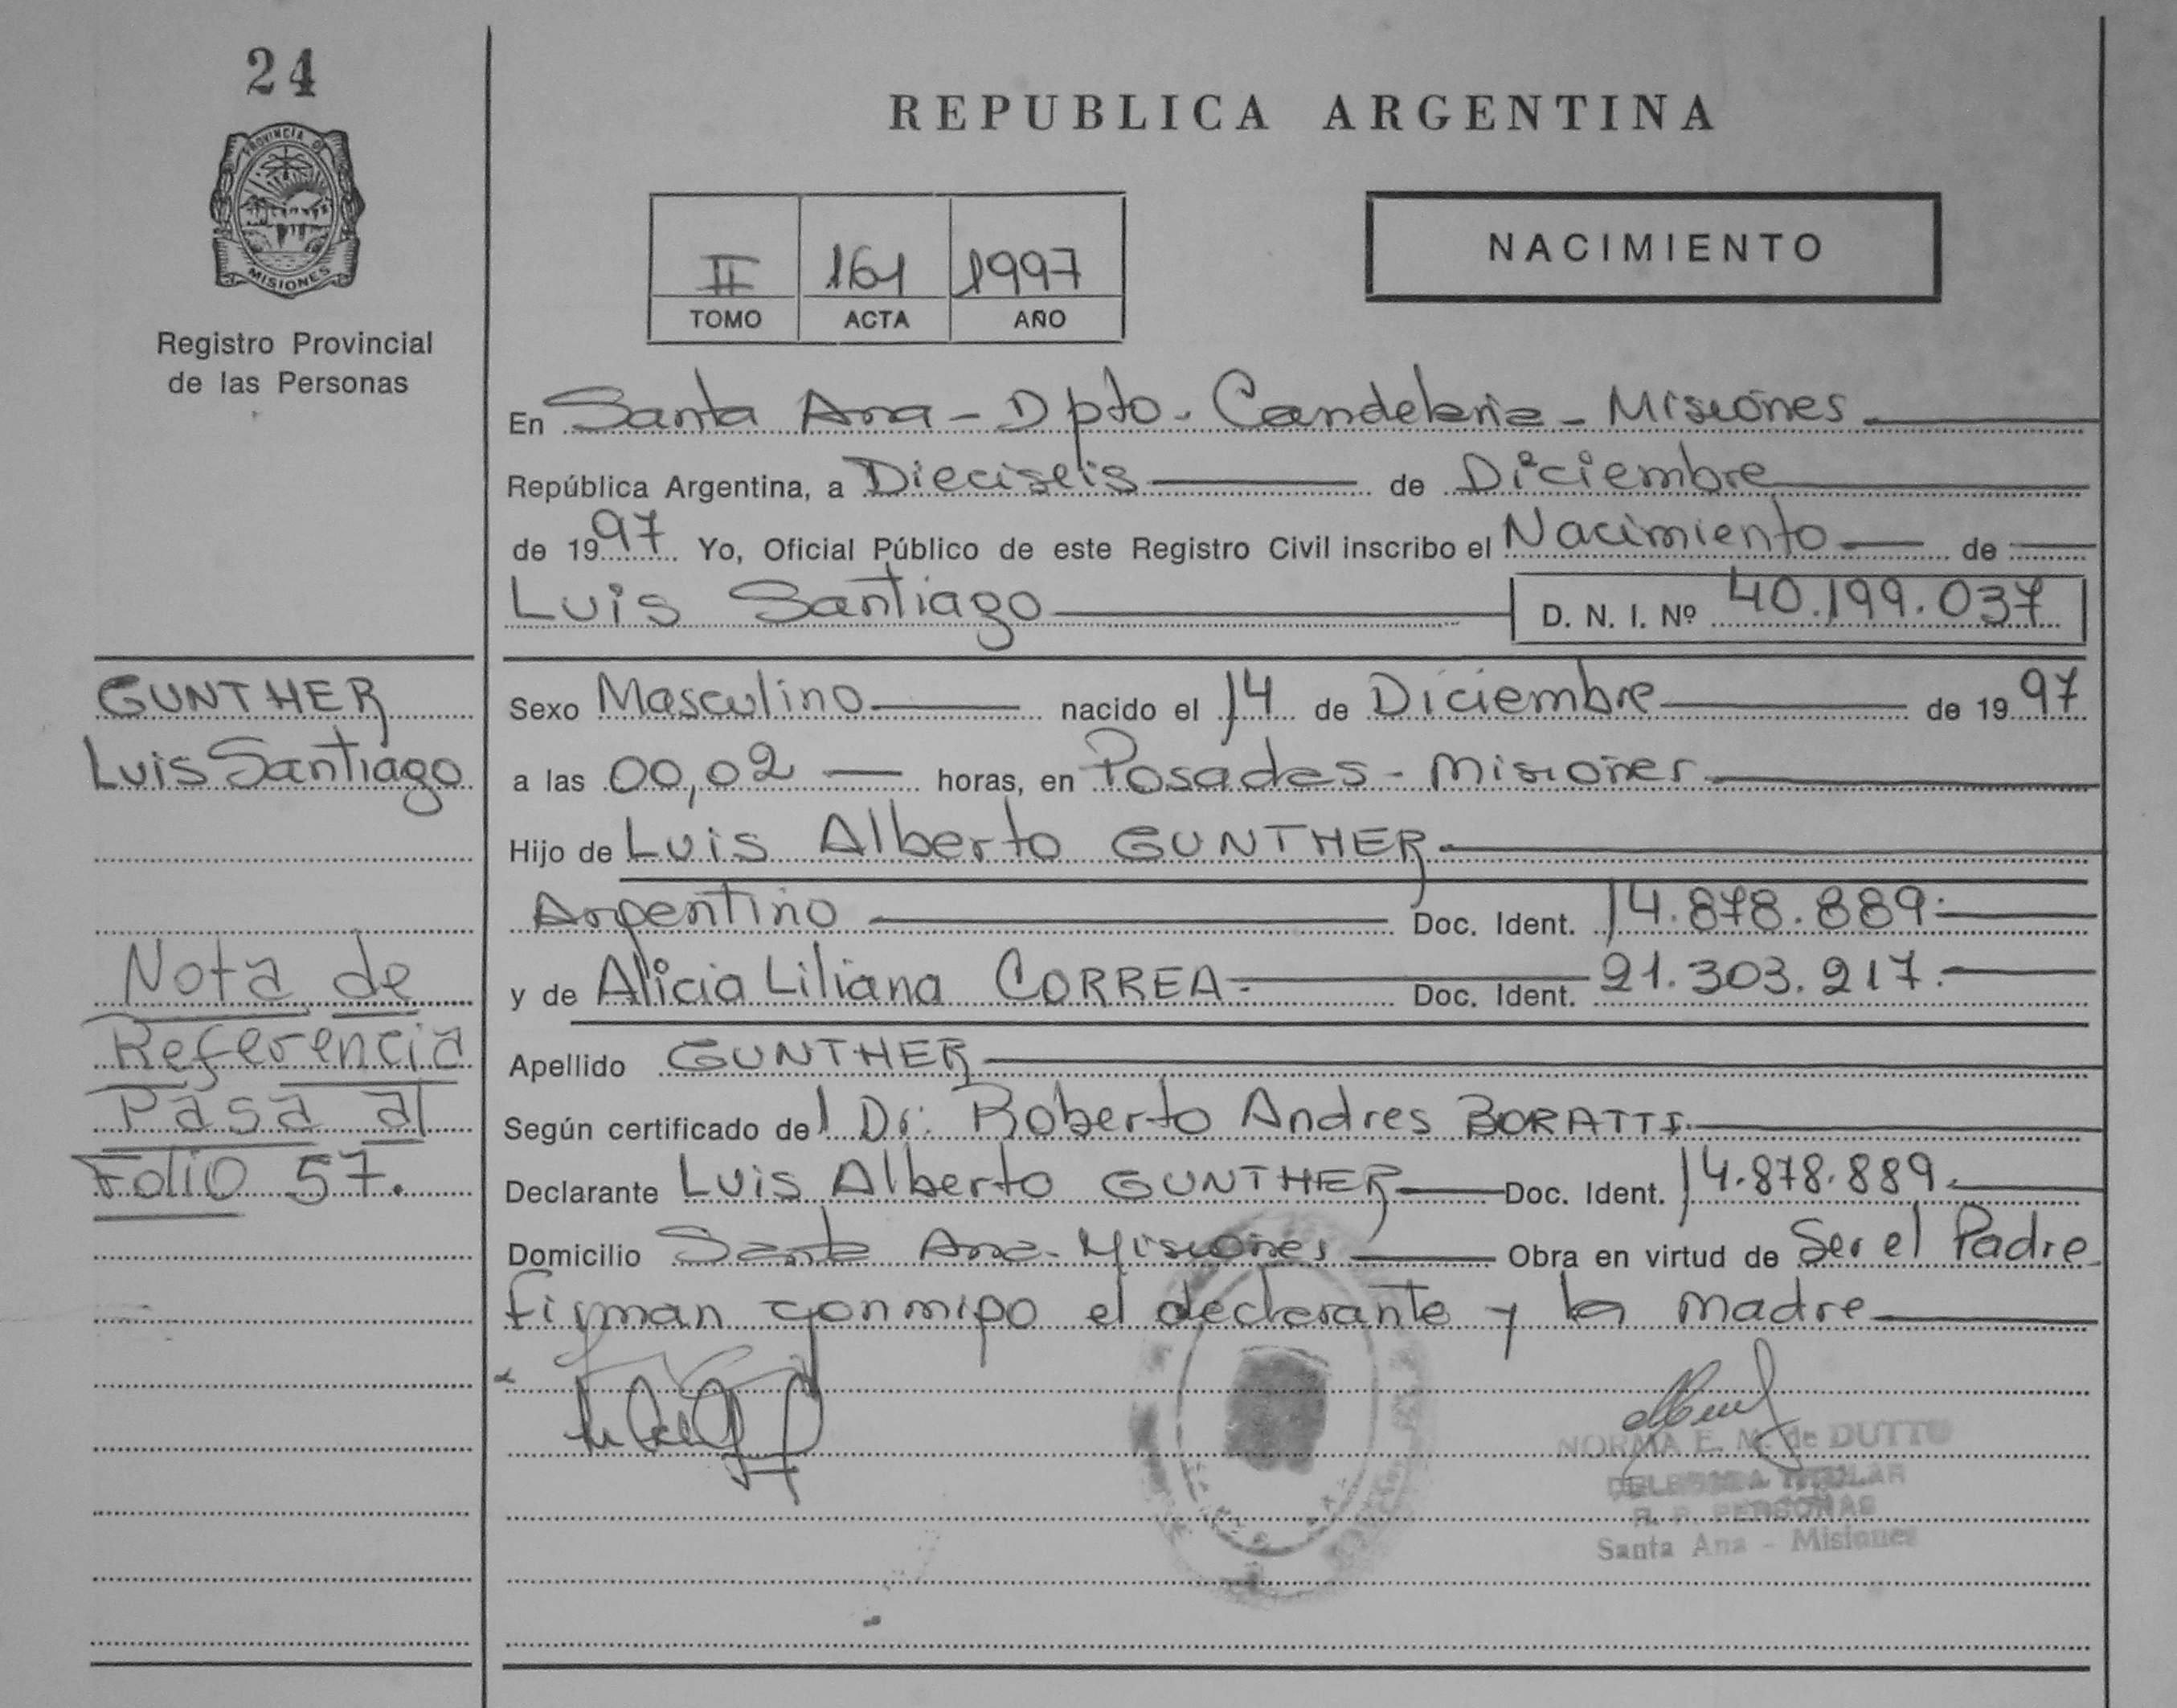 24
PROVINCIA DE
MISIONES
Registro Provincial
de las Personas
REPUBLICA ARGENTINA
II 161 1997
TOMO ACTA AÑO
NACIMIENTO
En Santa Ana - Dpto. Candelaria - Misiones
República Argentina, a Dieciseis de Diciembre
de 1997 Yo, Oficial Público de este Registro Civil inscribo el Nacimiento de
Luis Santiago D. N. I. Nº 40.199.037
GUNTHER
Luis Santiago
Sexo Masculino nacido el 14 de Diciembre de 1997
a las 00,02 horas, en Posadas - Misiones
Hijo de Luis Alberto GUNTHER
Argentino Doc. Ident. 14.878.889
y de Alicia Liliana CORREA Doc. Ident. 21.303.217
Apellido GUNTHER
Según certificado del Dr. Roberto Andres BORATTI
Declarante Luis Alberto GUNTHER Doc. Ident. 14.878.889
Domicilio Santa Ana - Misiones Obra en virtud de Ser el Padre
firman conmigo el declarante y la madre
Nota de
Referencia
Pasa al
Folio 57.
NORMA E. M. de DUTTO
DELEGADA TITULAR
R. P. PERSONAS
Santa Ana - Misiones